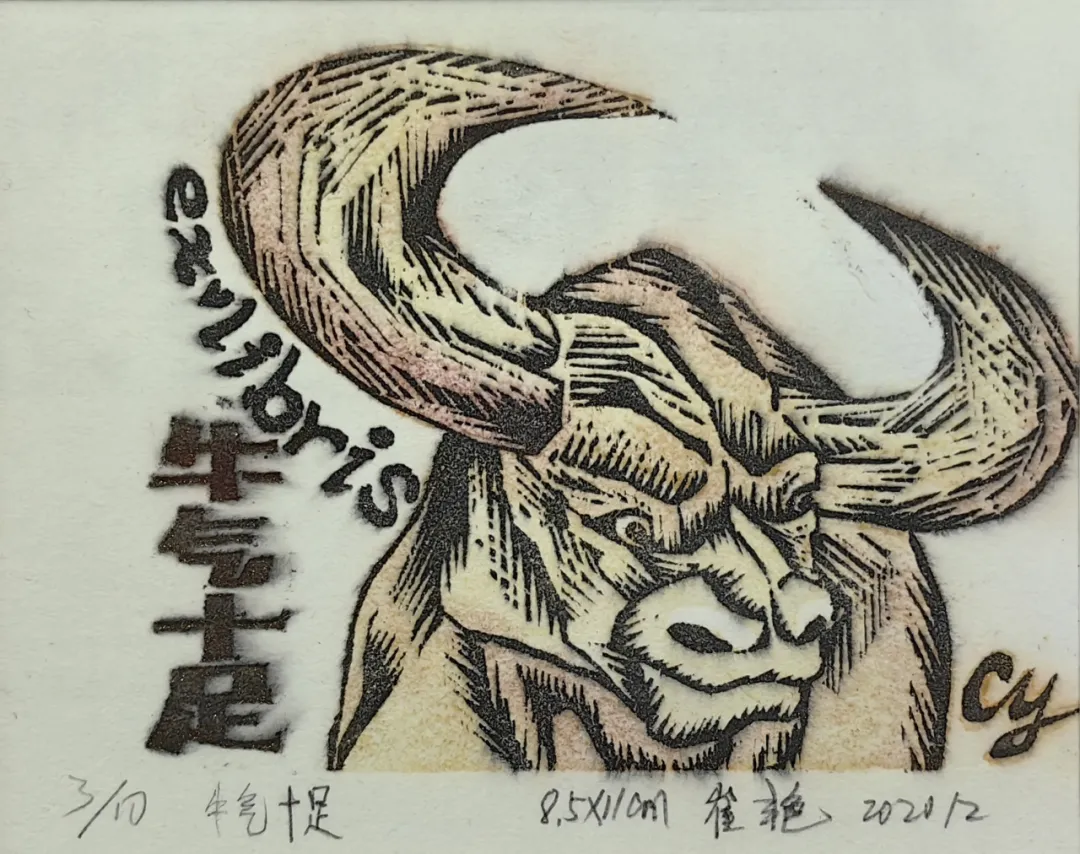 exlibris
牛气十足
cy
3/10 牛气十足 8.5X11cm 崔艳 202012